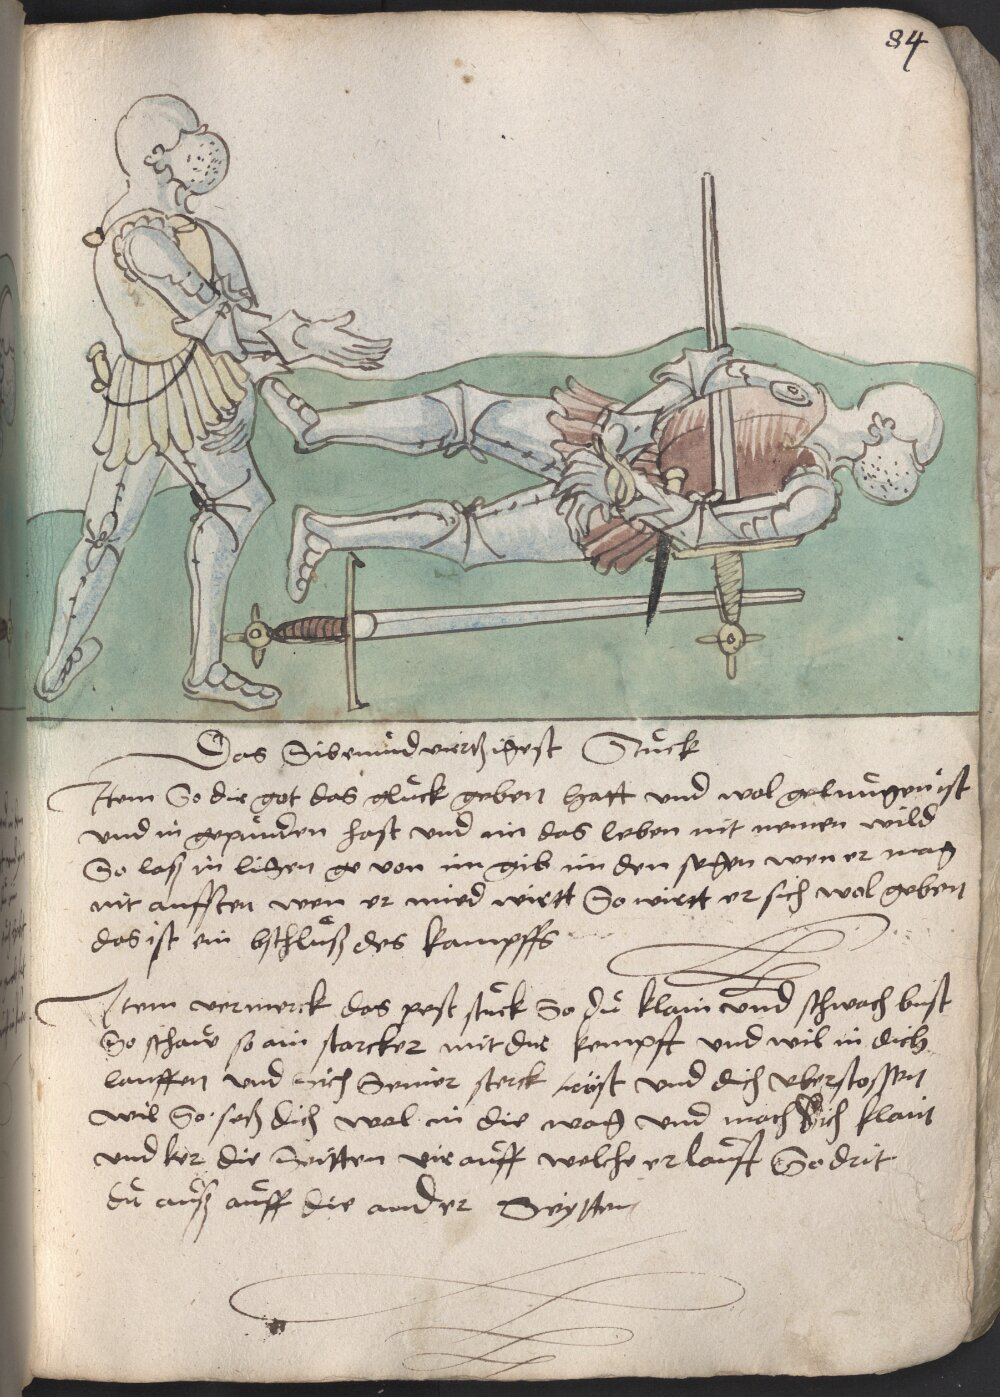 84
Das Sibenundvierzigest Stuck
Item So dir got das glück geben hatt und wol gelungen ist
und in gepunden hast und im das leben nit nemen wild
So laß in ligen ge von im gib im den segen wen er mag
nit auffsten wen er mied wirtt So wirtt er sich wol geben
das ist ein bschluß des kampffs
Item vermerck das pest stuck So du klain und schwach bist
So schaw so ain starcker mit dir kempft und wil in dich
lauffen und sich seiner sterck tröst und dich uberstossen
wil So setz dich wol in die wag und mach dich klain
und ker die seitten vir auff welche er laufft So drit
du auß auff die ander Seytten